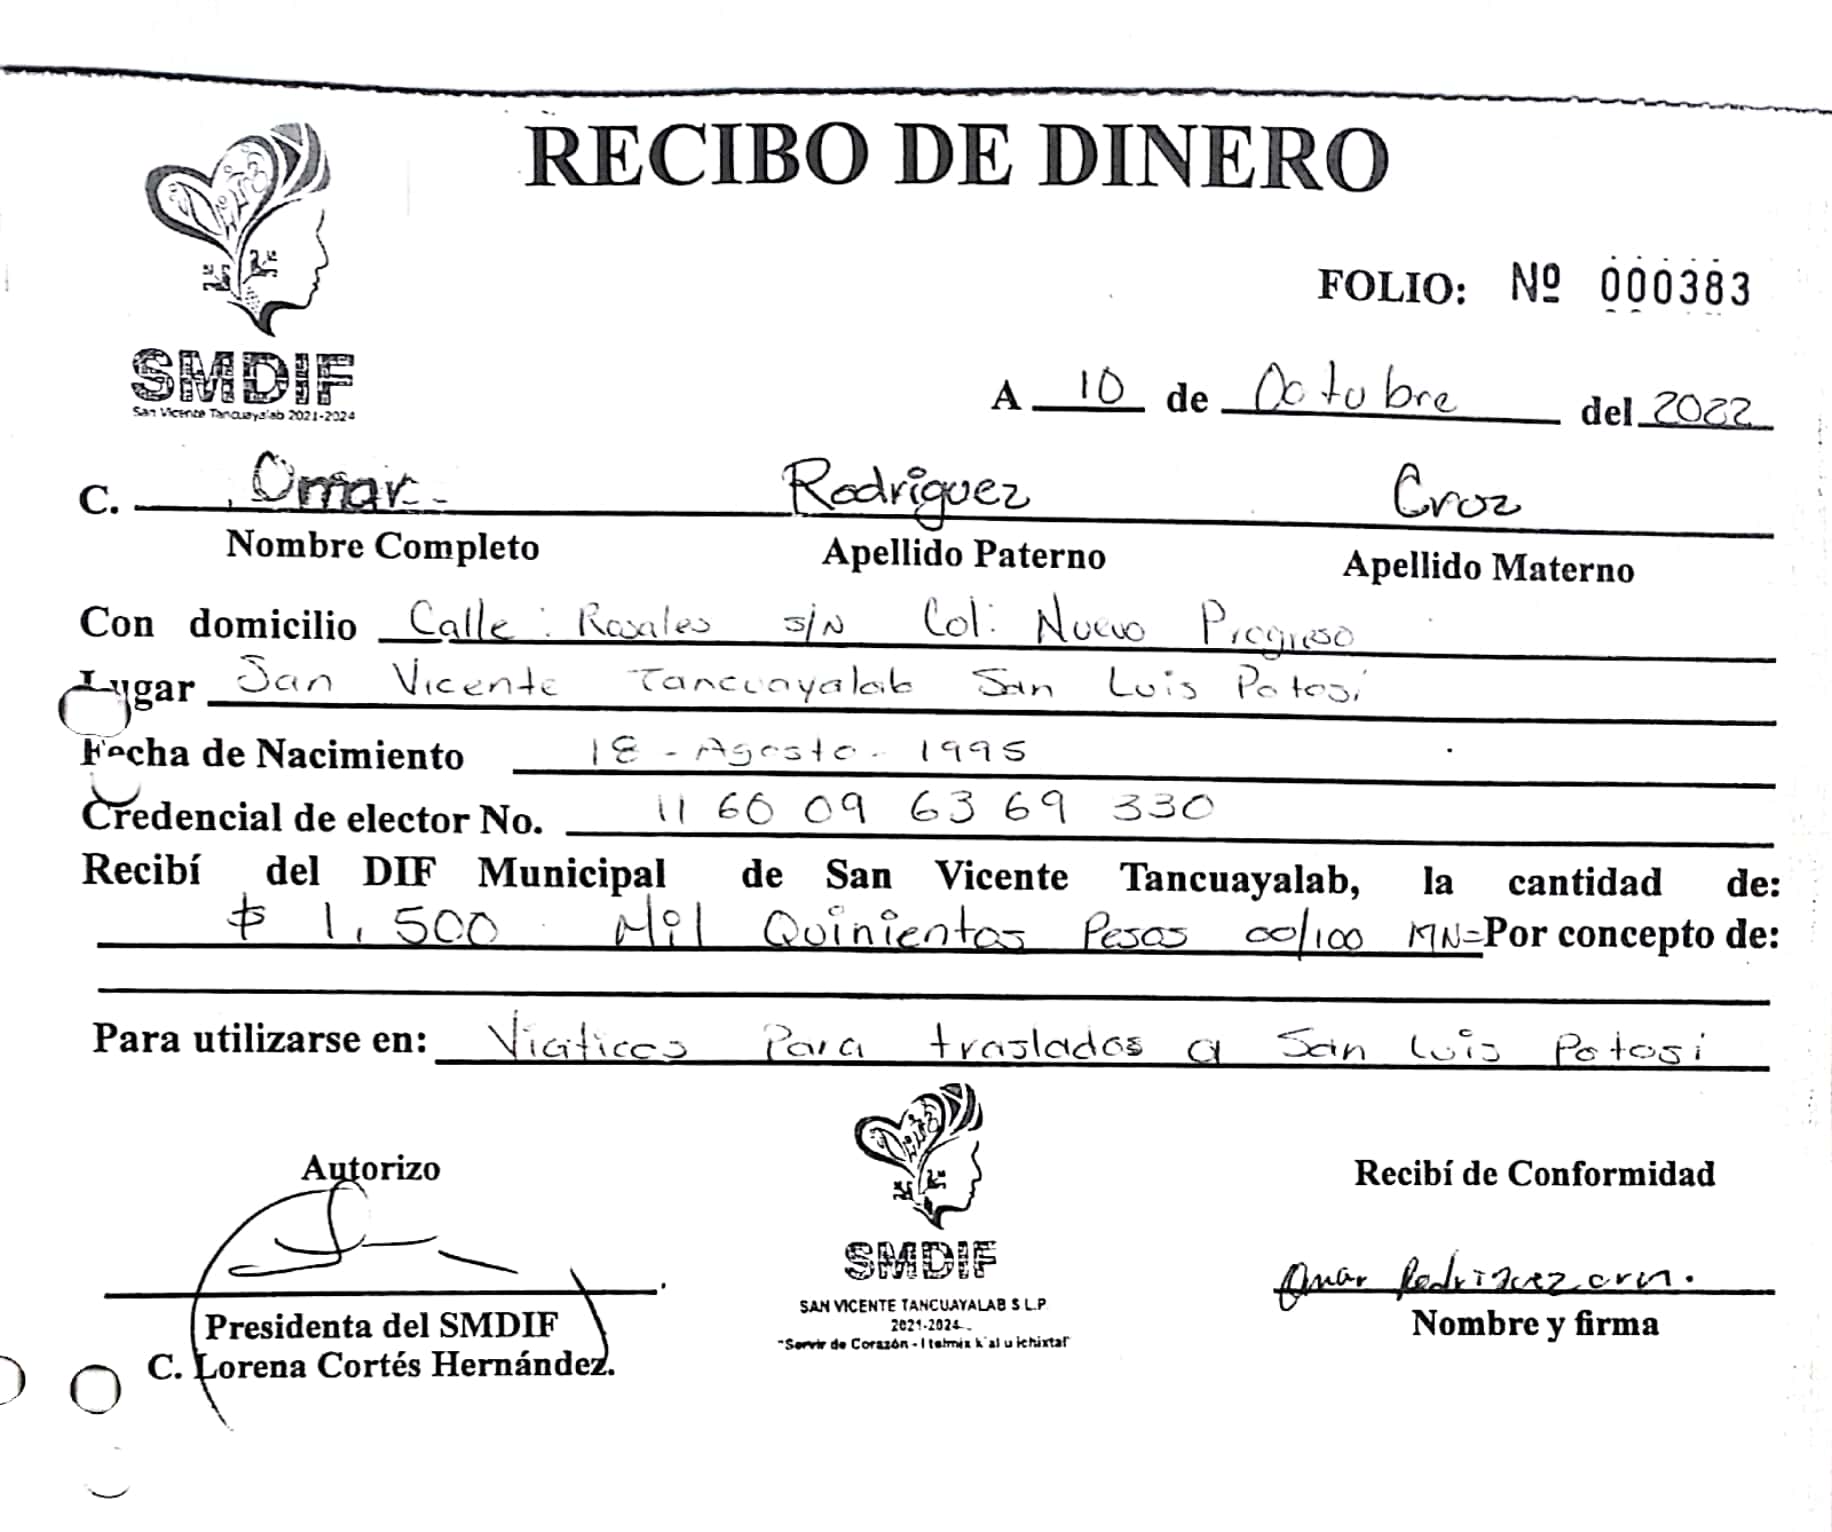 RECIBO DE DINERO
FOLIO: Nº 000383
SMDIF
San Vicente Tancuayalab 2021-2024
A 10 de Octubre del 2022
C. Omar Rodriguez Cruz
Nombre Completo Apellido Paterno Apellido Materno
Con domicilio Calle: Rosales S/N Col: Nuevo Progreso
Lugar San Vicente Tancuayalab San Luis Potosi
Fecha de Nacimiento 18 - Agosto - 1995
Credencial de elector No. 11 60 09 63 69 330
Recibí del DIF Municipal de San Vicente Tancuayalab, la cantidad de:
$ 1,500 Mil Quinientos Pesos 00/100 MN= Por concepto de:
Para utilizarse en: Viaticos Para traslados a San Luis Potosi
Autorizo
Presidenta del SMDIF
C. Lorena Cortés Hernández.
SMDIF
SAN VICENTE TANCUAYALAB S.L.P.
2021-2024
"Servir de Corazón - I telmix k'al u ichixtal"
Recibí de Conformidad
Omar Rodriguez
Nombre y firma